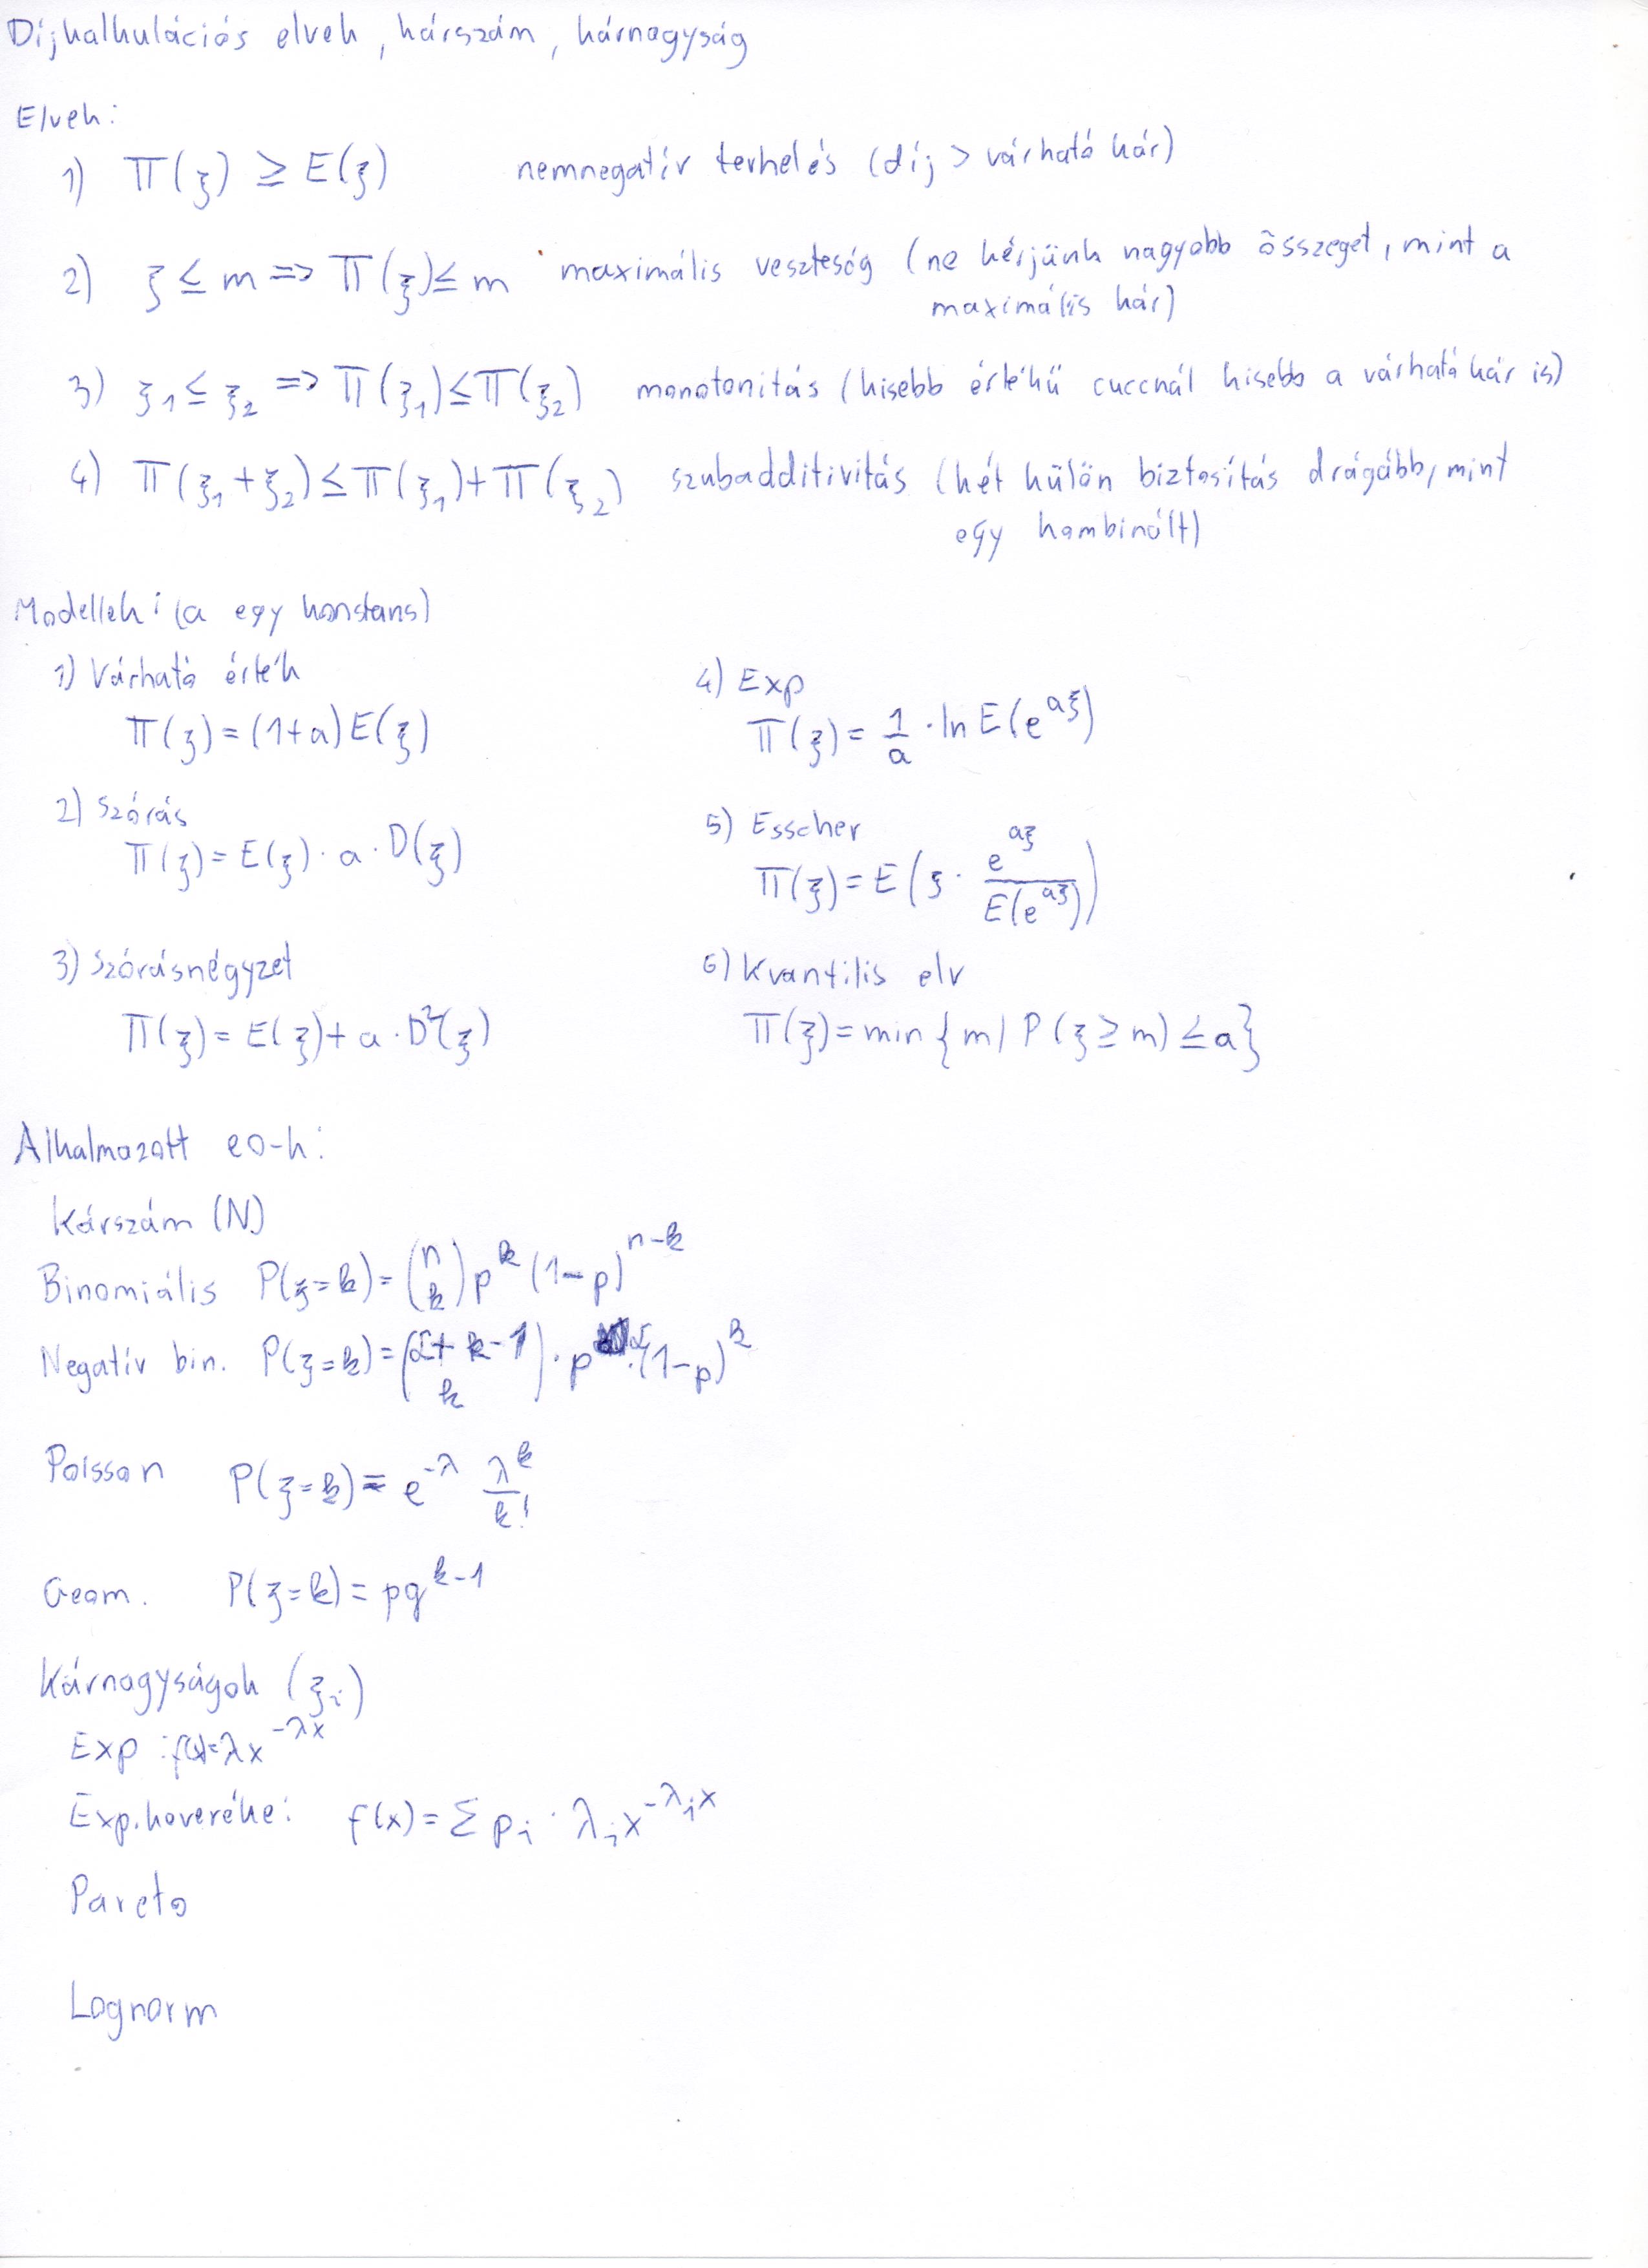 Díjkalkulációs elvek, kárszám, kárnagyság
Elvek:
1) Π(ξ) ≥ E(ξ) nemnegatív terhelés (díj > várható kár)
2) ξ ≤ m => Π(ξ) ≤ m maximális veszteség (ne kérjünk nagyobb összeget, mint a
maximális kár)
3) ξ₁ ≤ ξ₂ => Π(ξ₁) ≤ Π(ξ₂) monotonitás (kisebb értékű cuccnál kisebb a várható kár is)
4) Π(ξ₁+ξ₂) ≤ Π(ξ₁)+Π(ξ₂) szubadditivitás (két külön biztosítás drágább, mint
egy kombinált)
Modellek: (a egy konstans)
1) Várható érték
Π(ξ) = (1+a) E(ξ)
2) Szórás
Π(ξ) = E(ξ) · a · D(ξ)
3) Szórásnégyzet
Π(ξ) = E(ξ) + a · D²(ξ)
4) Exp
Π(ξ) = 1/a · ln E(e^{aξ})
5) Esscher
Π(ξ) = E(ξ · e^{aξ}/E(e^{aξ}))
6) Kvantilis elv
Π(ξ) = min {m | P(ξ ≥ m) ≤ a}
Alkalmazott eo-k:
Kárszám (N)
Binomiális P(ξ=k) = (n k) p^k (1-p)^{n-k}
Negatív bin. P(ξ=k) = (r+k-1 k) · p^r · (1-p)^k
Poisson P(ξ=k) = e^{-λ} λ^k/k!
Geom. P(ξ=k) = pq^{k-1}
Kárnagyságok (ξᵢ)
Exp: f(x)=λx^{-λx}
Exp. keveréke: f(x) = Σ pᵢ · λᵢx^{-λᵢx}
Pareto
Lognorm